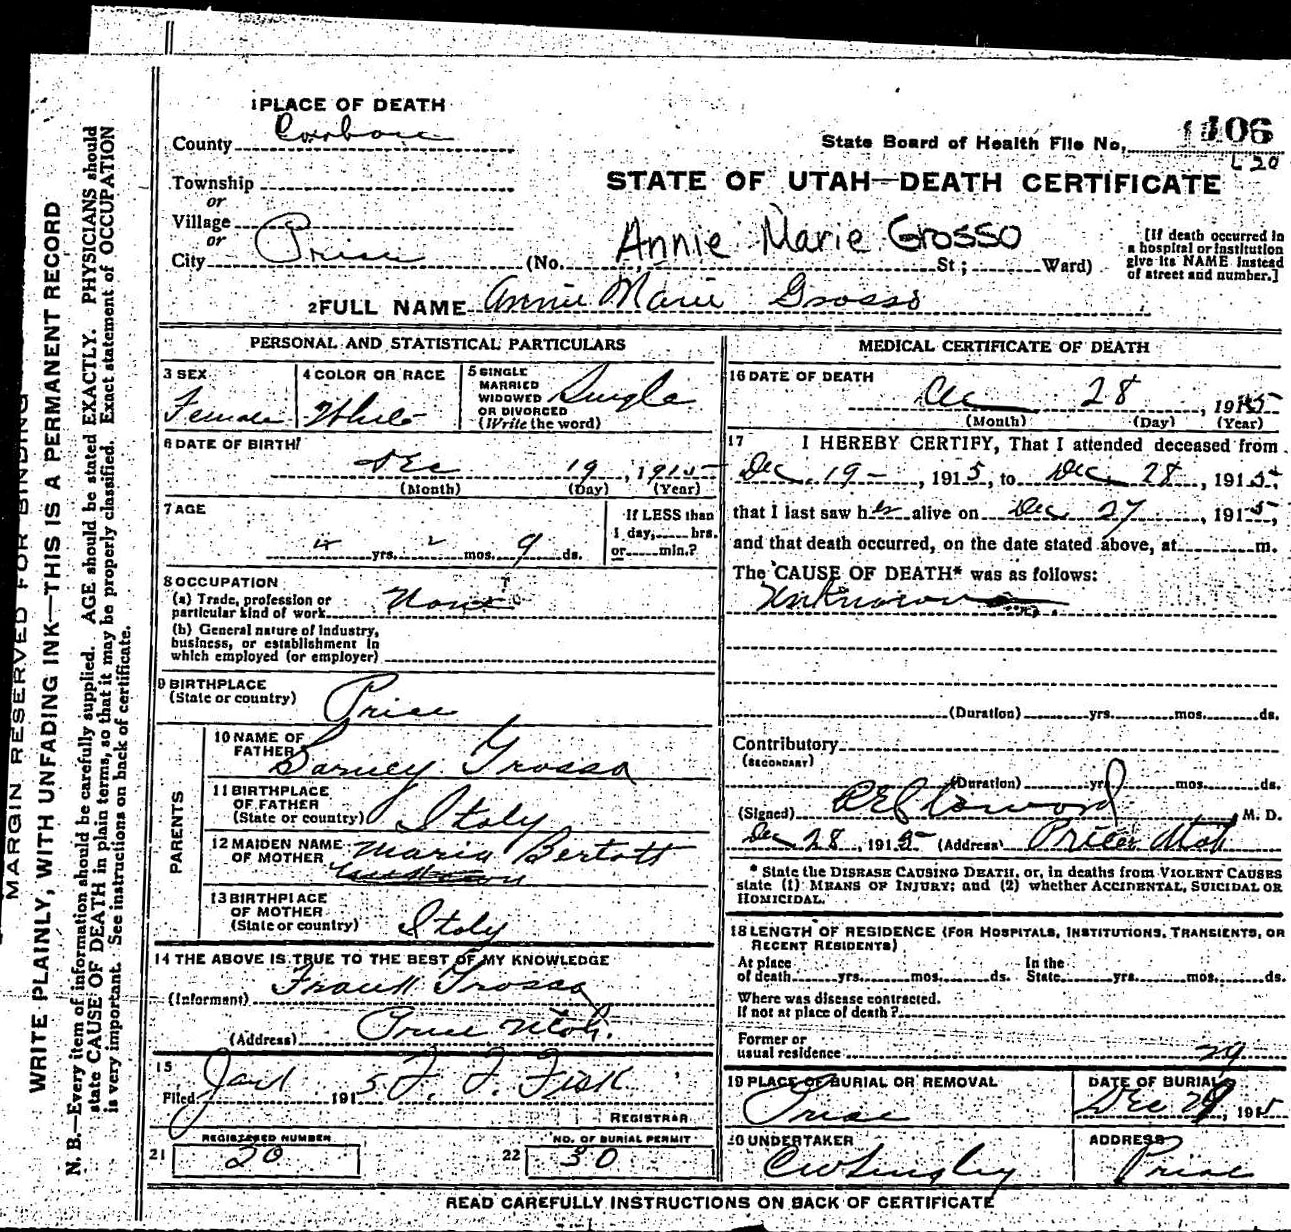 1 PLACE OF DEATH
County Carbon
State Board of Health File No. 1106
L 20
Township
or
STATE OF UTAH—DEATH CERTIFICATE
Village
or
City Price
Annie Marie Grosso
(No. St; Ward)
[If death occurred in
a hospital or institution
give its NAME instead
of street and number.]
2 FULL NAME Annie Marie Grosso
PERSONAL AND STATISTICAL PARTICULARS
3 SEX
Female
4 COLOR OR RACE
White
5 SINGLE
MARRIED
WIDOWED
OR DIVORCED
(Write the word)
Single
6 DATE OF BIRTH
Dec 19, 1915
(Month) (Day) (Year)
7 AGE
yrs. mos. 9 ds.
If LESS than
1 day, hrs.
or min.?
8 OCCUPATION
(a) Trade, profession or
particular kind of work None
(b) General nature of industry,
business, or establishment in
which employed (or employer)
9 BIRTHPLACE
(State or country) Price
PARENTS
10 NAME OF
FATHER Barney Grosso
11 BIRTHPLACE
OF FATHER
(State or country) Italy
12 MAIDEN NAME
OF MOTHER Maria Bertott
13 BIRTHPLACE
OF MOTHER
(State or country) Italy
14 THE ABOVE IS TRUE TO THE BEST OF MY KNOWLEDGE
(Informant) Frank Grosso
(Address) Price Utah.
15
Filed Jan 1 1915 F. F. Fisk
REGISTRAR
21 REGISTERED NUMBER 20
22 NO. OF BURIAL PERMIT 30
MEDICAL CERTIFICATE OF DEATH
16 DATE OF DEATH
Dec 28, 1915
(Month) (Day) (Year)
17 I HEREBY CERTIFY, That I attended deceased from
Dec 19 -, 1915, to Dec 28, 1915,
that I last saw her alive on Dec 27, 1915,
and that death occurred, on the date stated above, at m.
The CAUSE OF DEATH* was as follows:
Unknown
(Duration) yrs. mos. ds.
Contributory
(SECONDARY)
(Duration) yrs. mos. ds.
(Signed) M. D.
Dec 28, 1915 (Address) Price Utah
* State the DISEASE CAUSING DEATH, or, in deaths from VIOLENT CAUSES
state (1) MEANS OF INJURY; and (2) whether ACCIDENTAL, SUICIDAL OR
HOMICIDAL.
18 LENGTH OF RESIDENCE (FOR HOSPITALS, INSTITUTIONS, TRANSIENTS, OR
RECENT RESIDENTS)
At place
of death yrs. mos. ds.
In the
State yrs. mos. ds.
Where was disease contracted.
If not at place of death?
Former or
usual residence
29
19 PLACE OF BURIAL OR REMOVAL
Price
DATE OF BURIAL
Dec 29, 1915
20 UNDERTAKER
ADDRESS
Price
READ CAREFULLY INSTRUCTIONS ON BACK OF CERTIFICATE
MARGIN RESERVED FOR BINDING
WRITE PLAINLY, WITH UNFADING INK—THIS IS A PERMANENT RECORD
N. B.—Every item of information should be carefully supplied. AGE should be stated EXACTLY. PHYSICIANS should
state CAUSE OF DEATH in plain terms, so that it may be properly classified. Exact statement of OCCUPATION
is very important. See instructions on back of certificate.